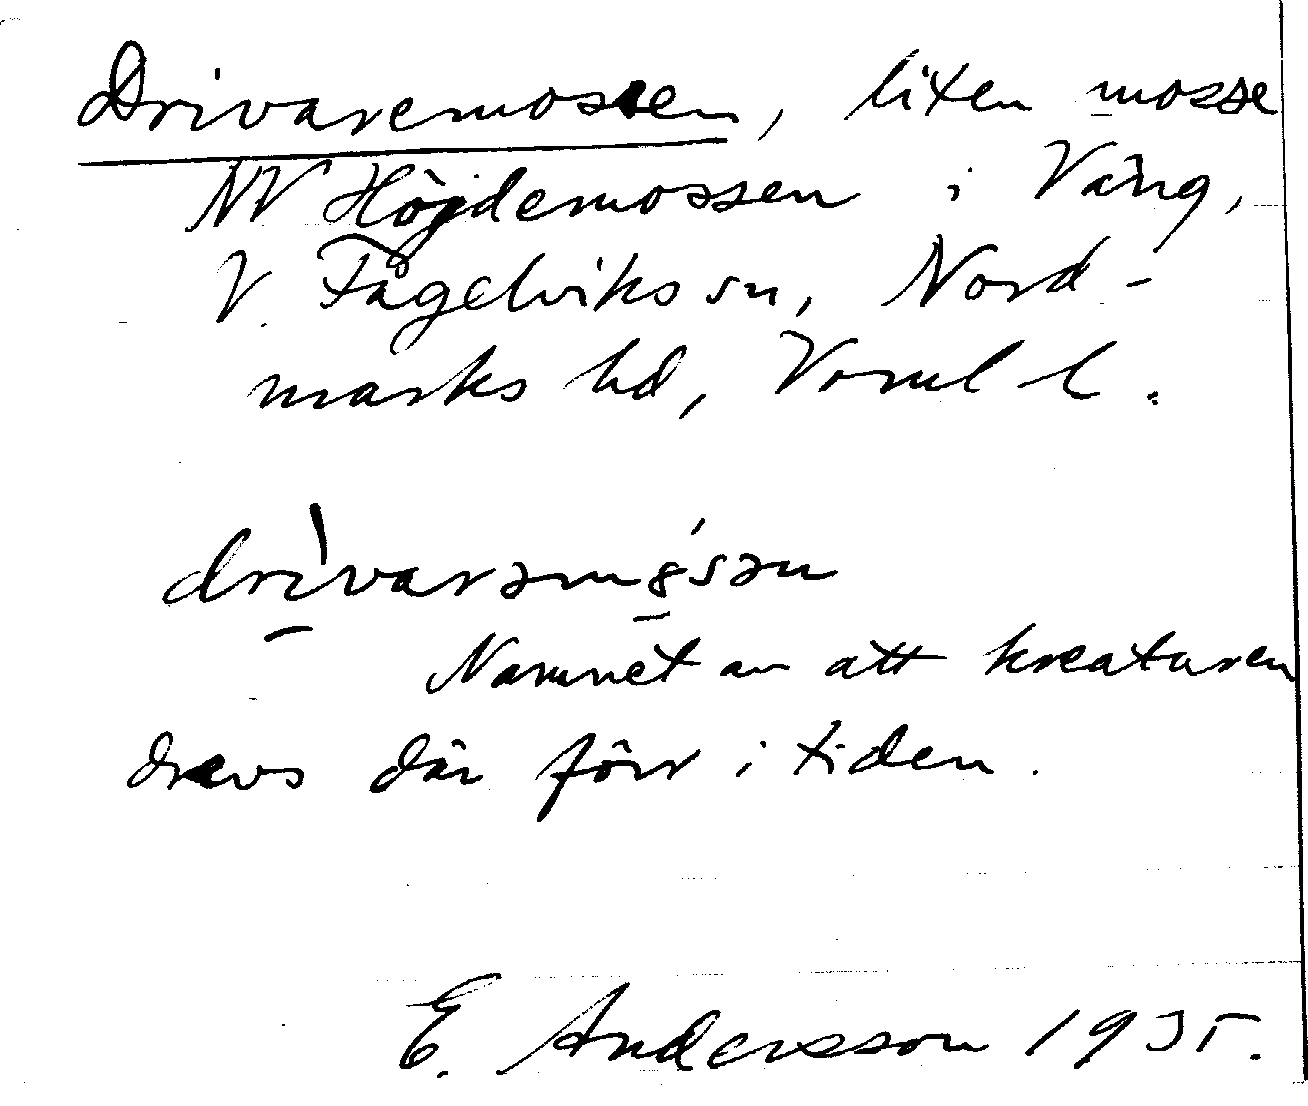 Drivaremossen, liten mosse
NV Höjdemossen i Vång,
V. Fågelviks sn, Nord-
marks hd, Vörml l.
Namnet av att kreaturen
drevs där förr i tiden.
E. Andersson 1935.